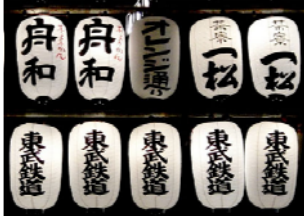 舟和
舟和
オレンジ通り
一松
一松
東武鉄道
東武鉄道
東武鉄道
東武鉄道
東武鉄道